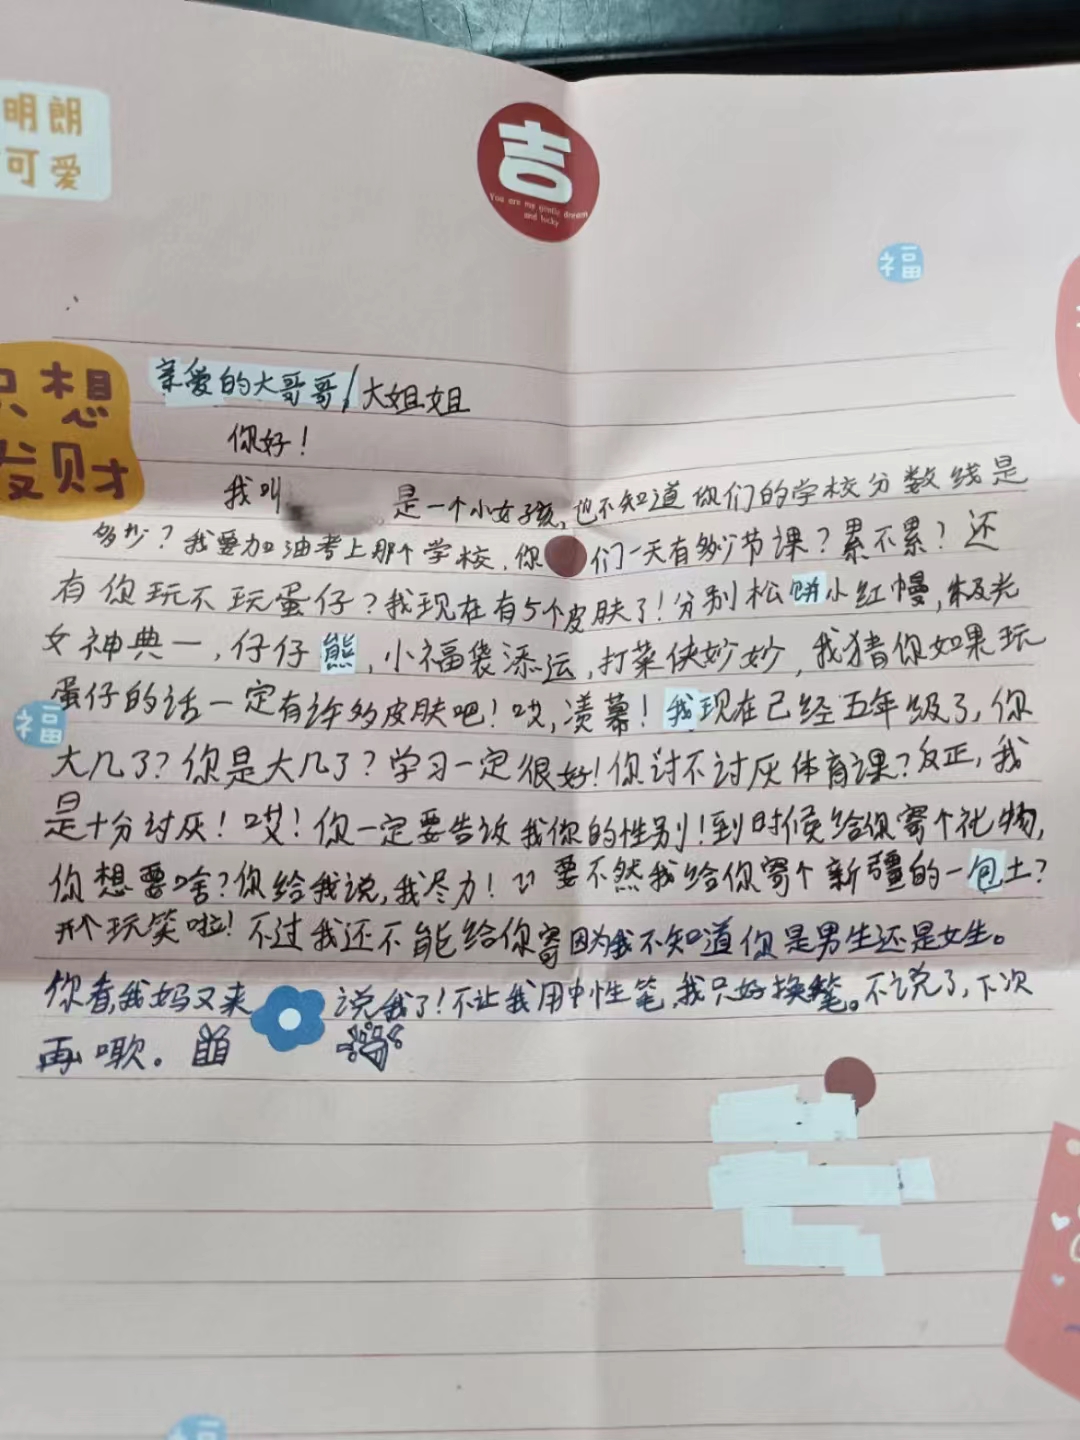 明朗
可爱
吉
You are my gentle dream
and lucky
福
只想
发财
亲爱的大哥哥/大姐姐
你好！
我叫 是一个小女孩，也不知道你们的学校分数线是
多少？我要加油考上那个学校，你们一天有多少节课？累不累？还
有你玩不玩蛋仔？我现在有5个皮肤了！分别松饼小红帽，极光
女神典一，仔仔熊，小福袋添运，打菜侠妙妙，我猜你如果玩
蛋仔的话一定有许多皮肤吧！哎，羡慕！我现在已经五年级了，你
福
大几了？你是大几了？学习一定很好！你讨不讨厌体育课？反正，我
是十分讨厌！哎！你一定要告诉我你的性别！到时候给你寄个礼物，
你想要啥？你给我说，我尽力！要不然我给你寄个新疆的一包土？
开个玩笑啦！不过我还不能给你寄因为我不知道你是男生还是女生。
你看，我妈又来说我了！不让我用中性笔，我只好换笔。不说了，下次
再嘞。
福